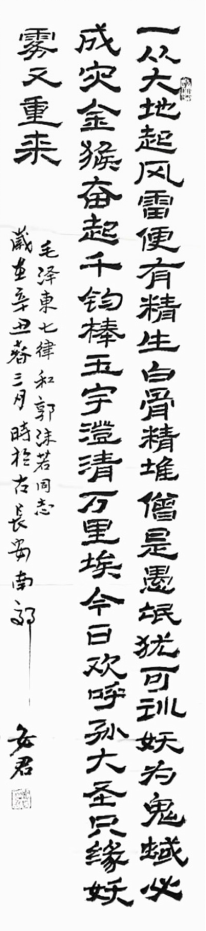 一从大地起风雷便有精生白骨精堆僧是愚氓犹可训妖为鬼蜮必
成灾金猴奋起千钧棒玉宇澄清万里埃今日欢呼孙大圣只缘妖
雾又重来
毛泽東七律和郭沫若同志
歲在辛丑春三月時於古長安南郭